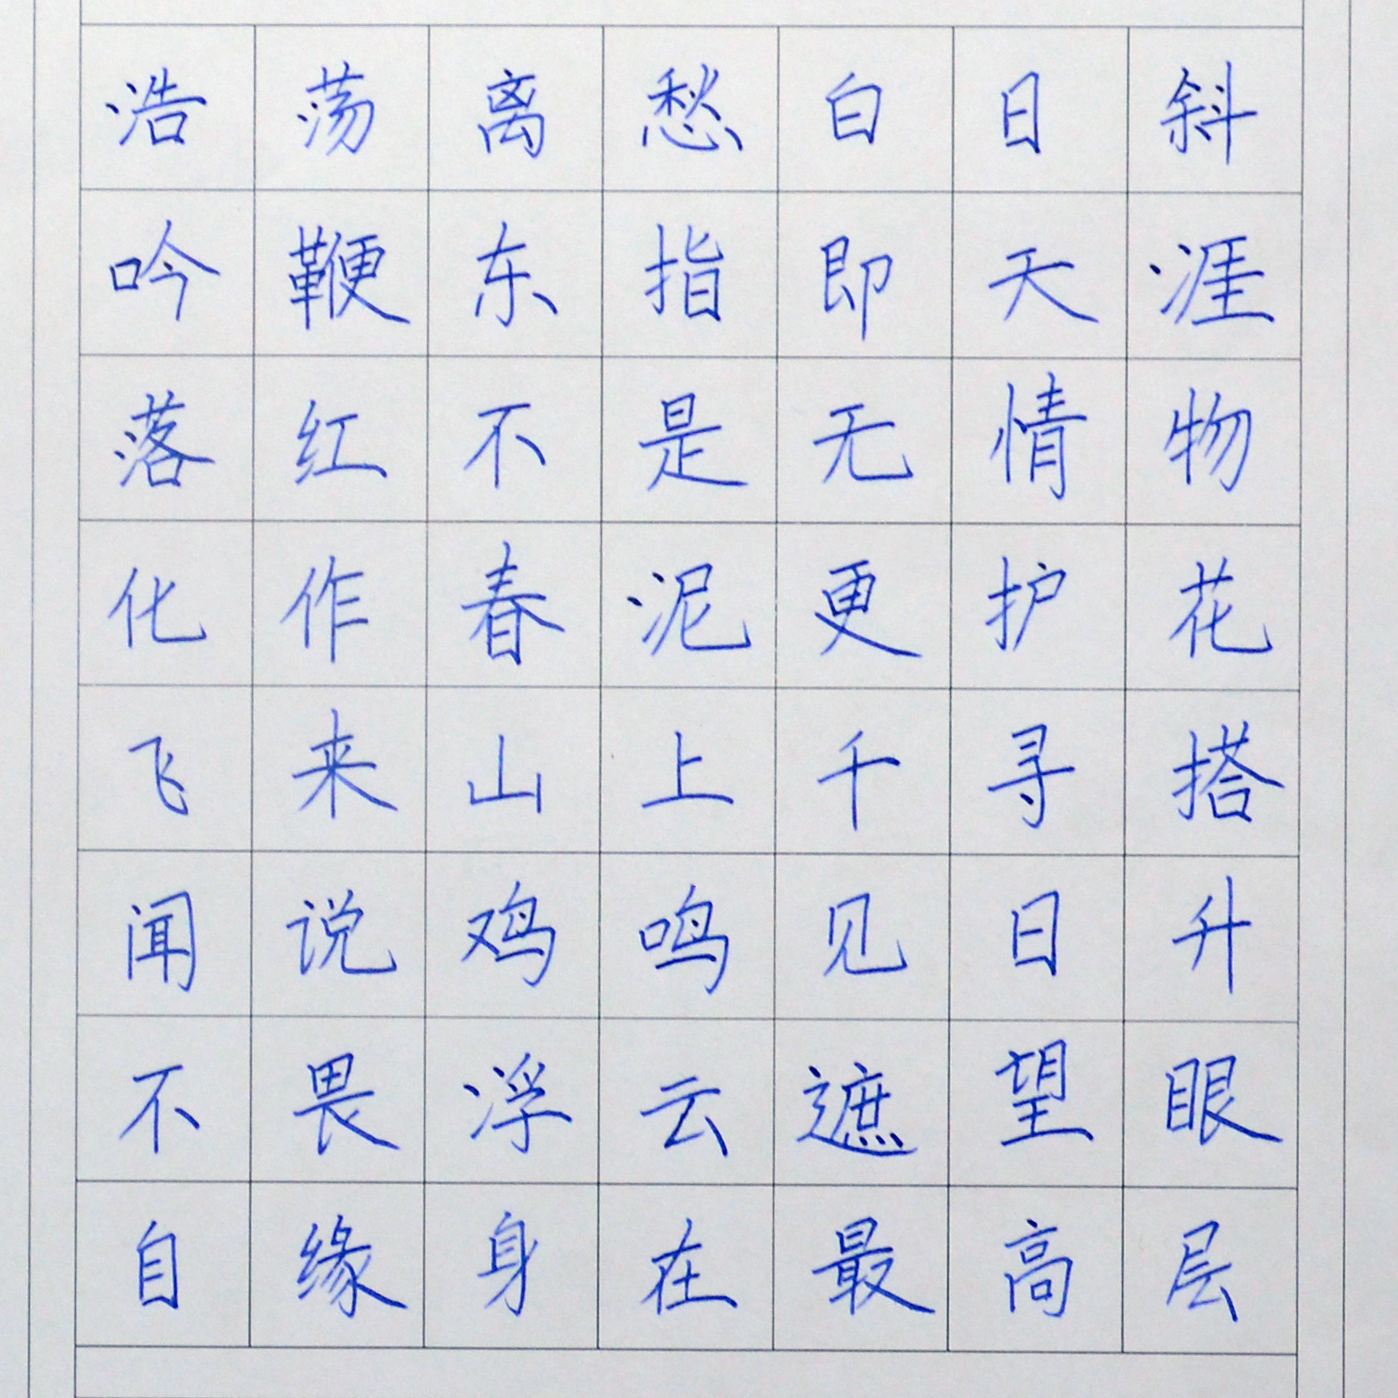 浩荡离愁白日斜
吟鞭东指即天涯
落红不是无情物
化作春泥更护花
飞来山上千寻搭
闻说鸡鸣见日升
不畏浮云遮望眼
自缘身在最高层